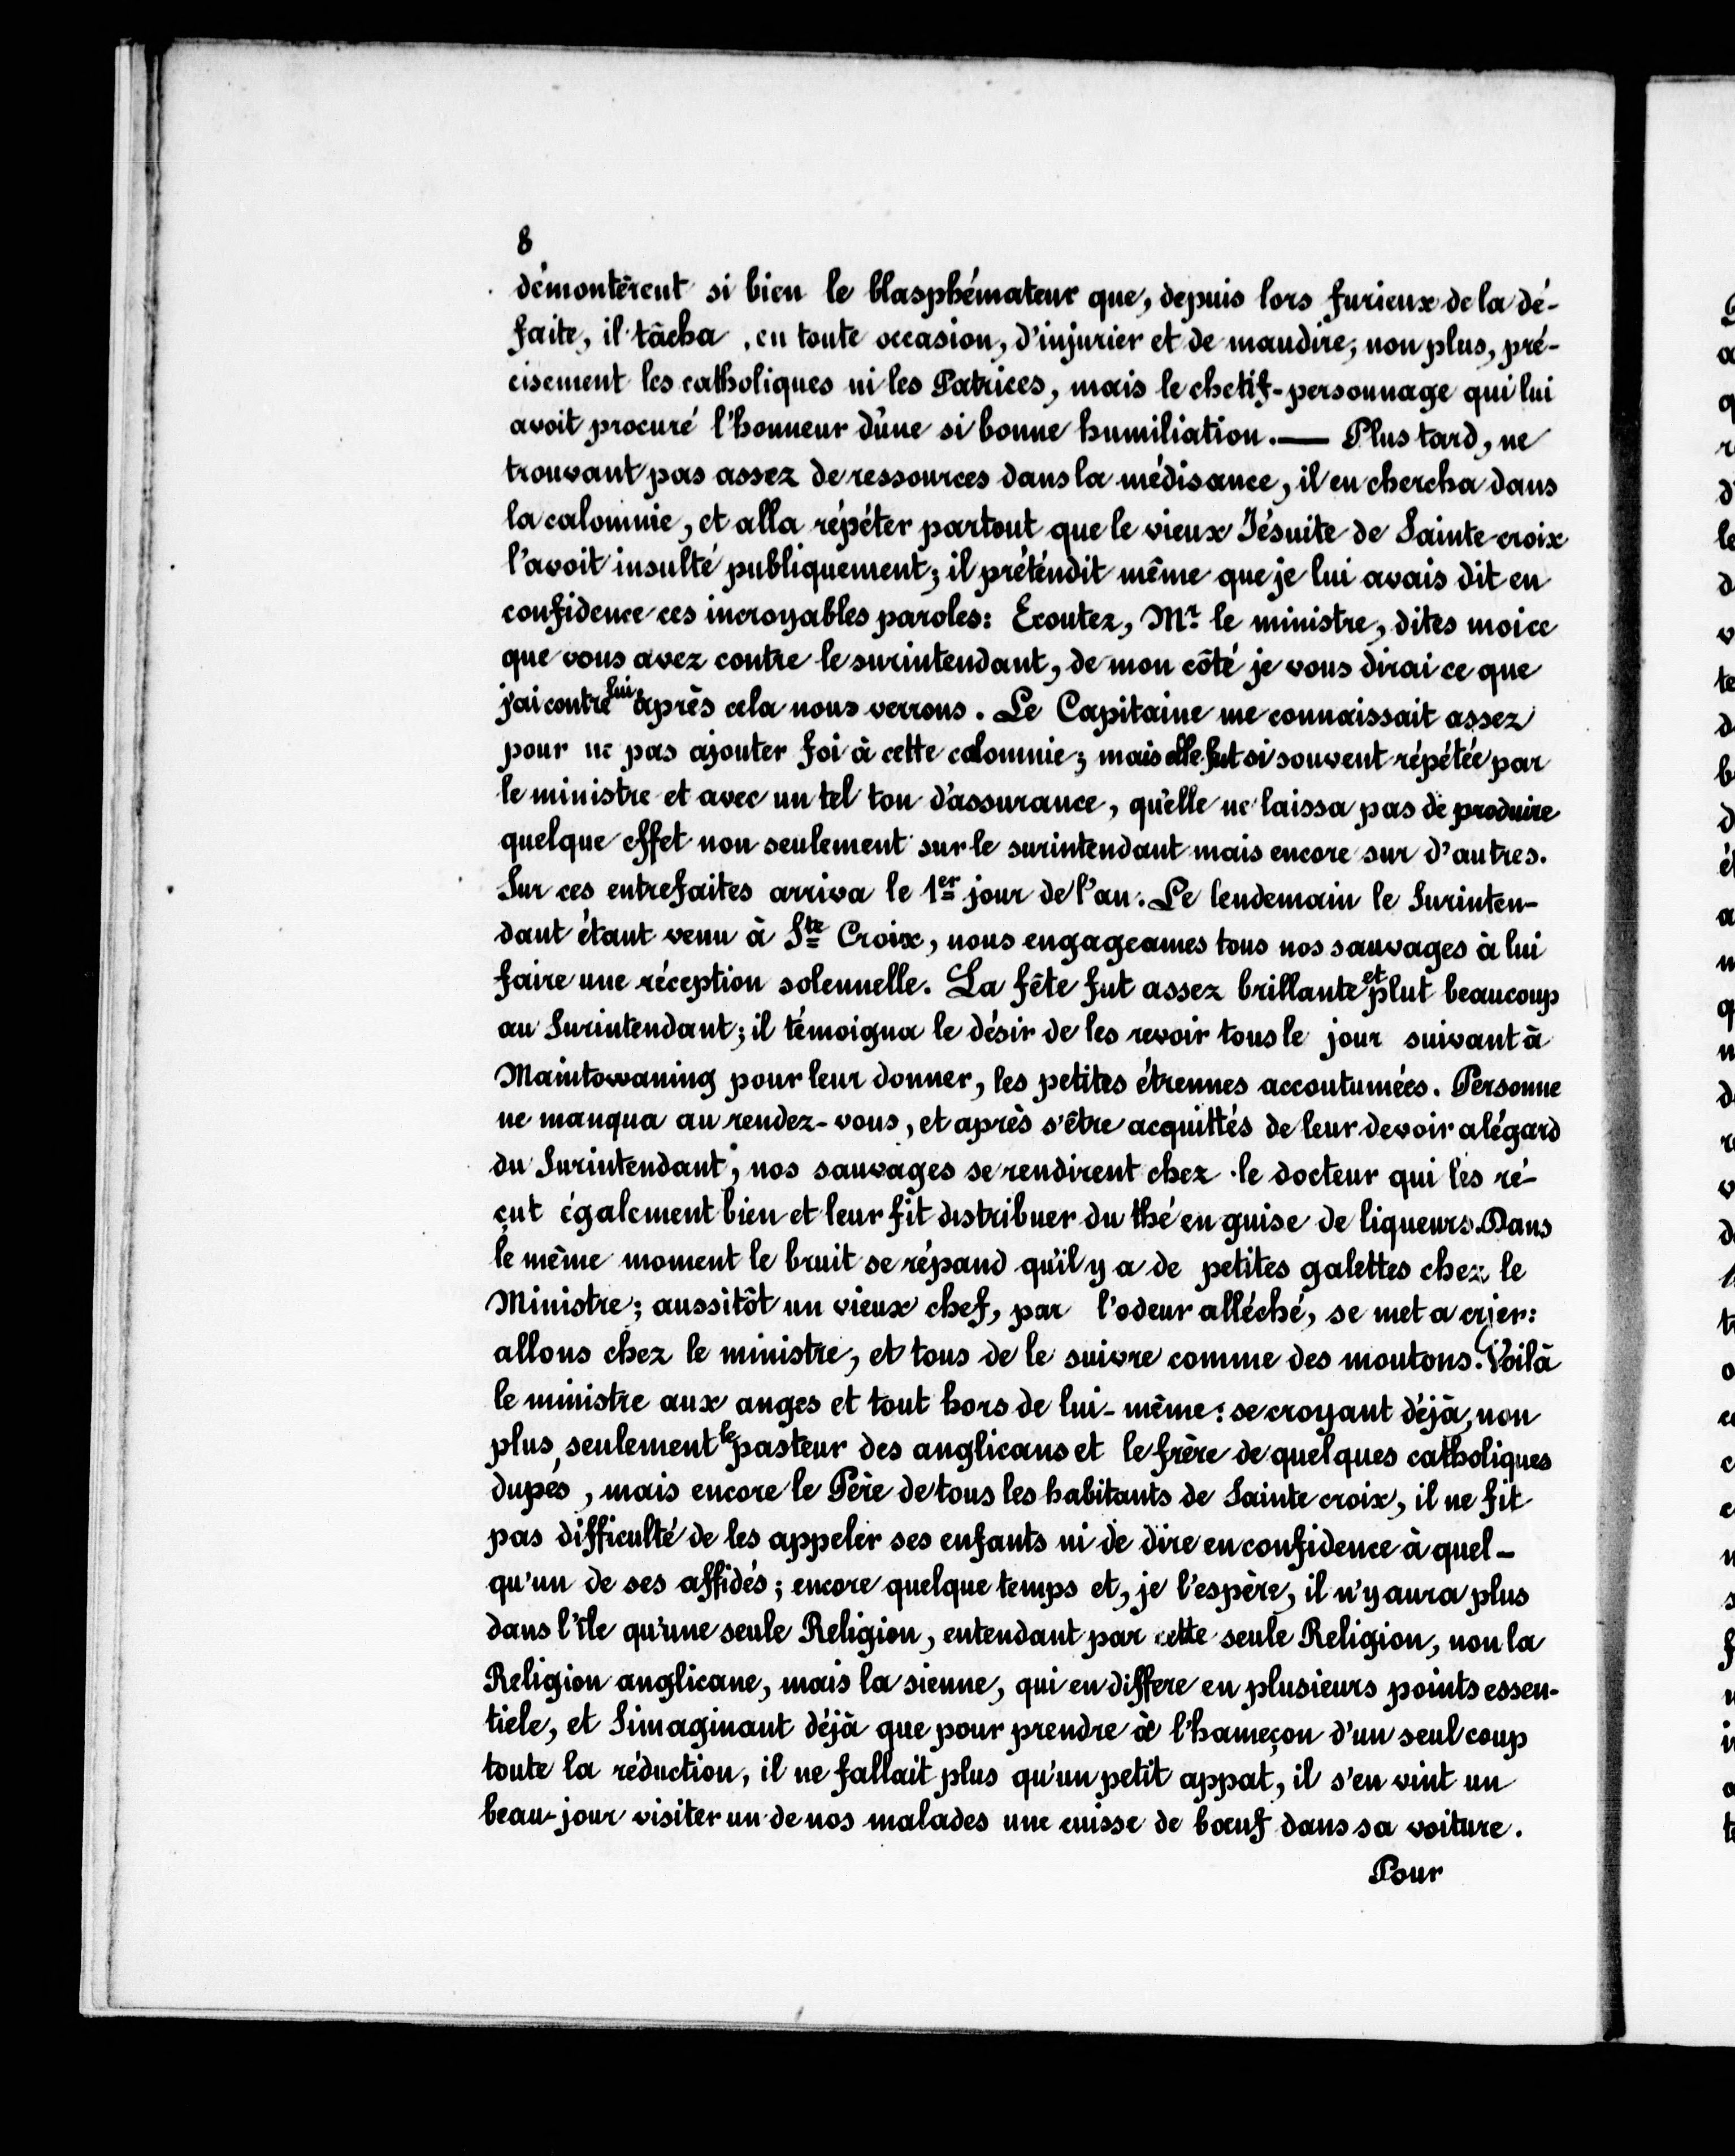 8
démontèrent si bien le blasphémateur que, depuis lors furieux de la dé-
faite, il tâcha, en toute occasion, d'injurier et de maudire, non plus, pré-
cisement les catholiques ni les Patrices, mais le chetif-personnage qui lui
avoit procuré l'honneur d'une si bonne humiliation. — Plus tard, ne
trouvant pas assez de ressources dans la médisance, il en chercha dans
la calomnie, et alla répéter partout que le vieux Jésuite de Sainte croix
l'avoit insulté publiquement; il prétendit même que je lui avais dit en
confidence ces incroyables paroles: Ecoutez, Mr le ministre, dites moi ce
que vous avez contre le surintendant, de mon côté je vous dirai ce que
j'ai contre lui après cela nous verrons. Le Capitaine me connaissait assez
pour ne pas ajouter foi à cette calomnie; mais elle fut si souvent répétée par
le ministre et avec un tel ton d'assurance, qu'elle ne laissa pas de produire
quelque effet non seulement sur le surintendant mais encore sur d'autres.
Sur ces entrefaites arriva le 1er jour de l'an. Le lendemain le Surinten-
dant étant venu à Ste Croix, nous engageames tous nos sauvages à lui
faire une réception solennelle. La fête fut assez brillante et plut beaucoup
au Surintendant; il témoigna le désir de les revoir tous le jour suivant à
Maintowaning pour leur donner, les petites étrennes accoutumées. Personne
ne manqua au rendez-vous, et après s'être acquittés de leur devoir a légard
du Surintendant, nos sauvages se rendirent chez le docteur qui les ré-
çut également bien et leur fit distribuer du thé en guise de liqueurs. Dans
le même moment le bruit se répand qu'il y a de petites galettes chez le
Ministre; aussitôt un vieux chef, par l'odeur alléché, se met a crier:
allons chez le ministre, et tous de le suivre comme des moutons. Voilà
le ministre aux anges et tout hors de lui-même: se croyant déjà, non
plus, seulement le pasteur des anglicans et le frère de quelques catholiques
dupés, mais encore le Père de tous les habitants de Sainte croix, il ne fit
pas difficulté de les appeler ses enfants ni de dire en confidence à quel-
qu'un de ses affidés; encore quelque temps et, je l'espère, il n'y aura plus
dans l'île qu'une seule Religion, entendant par cette seule Religion, non la
Religion anglicane, mais la sienne, qui en differe en plusieurs points essen-
tiels, et S'imaginant déjà que pour prendre à l'hameçon d'un seul coup
toute la réduction, il ne fallait plus qu'un petit appat, il s'en vint un
beau-jour visiter un de nos malades une cuisse de bœuf dans sa voiture.
Pour